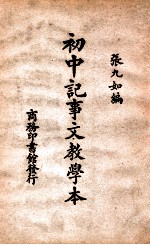 張九如編
初中記事文教學本
商務印書館發行